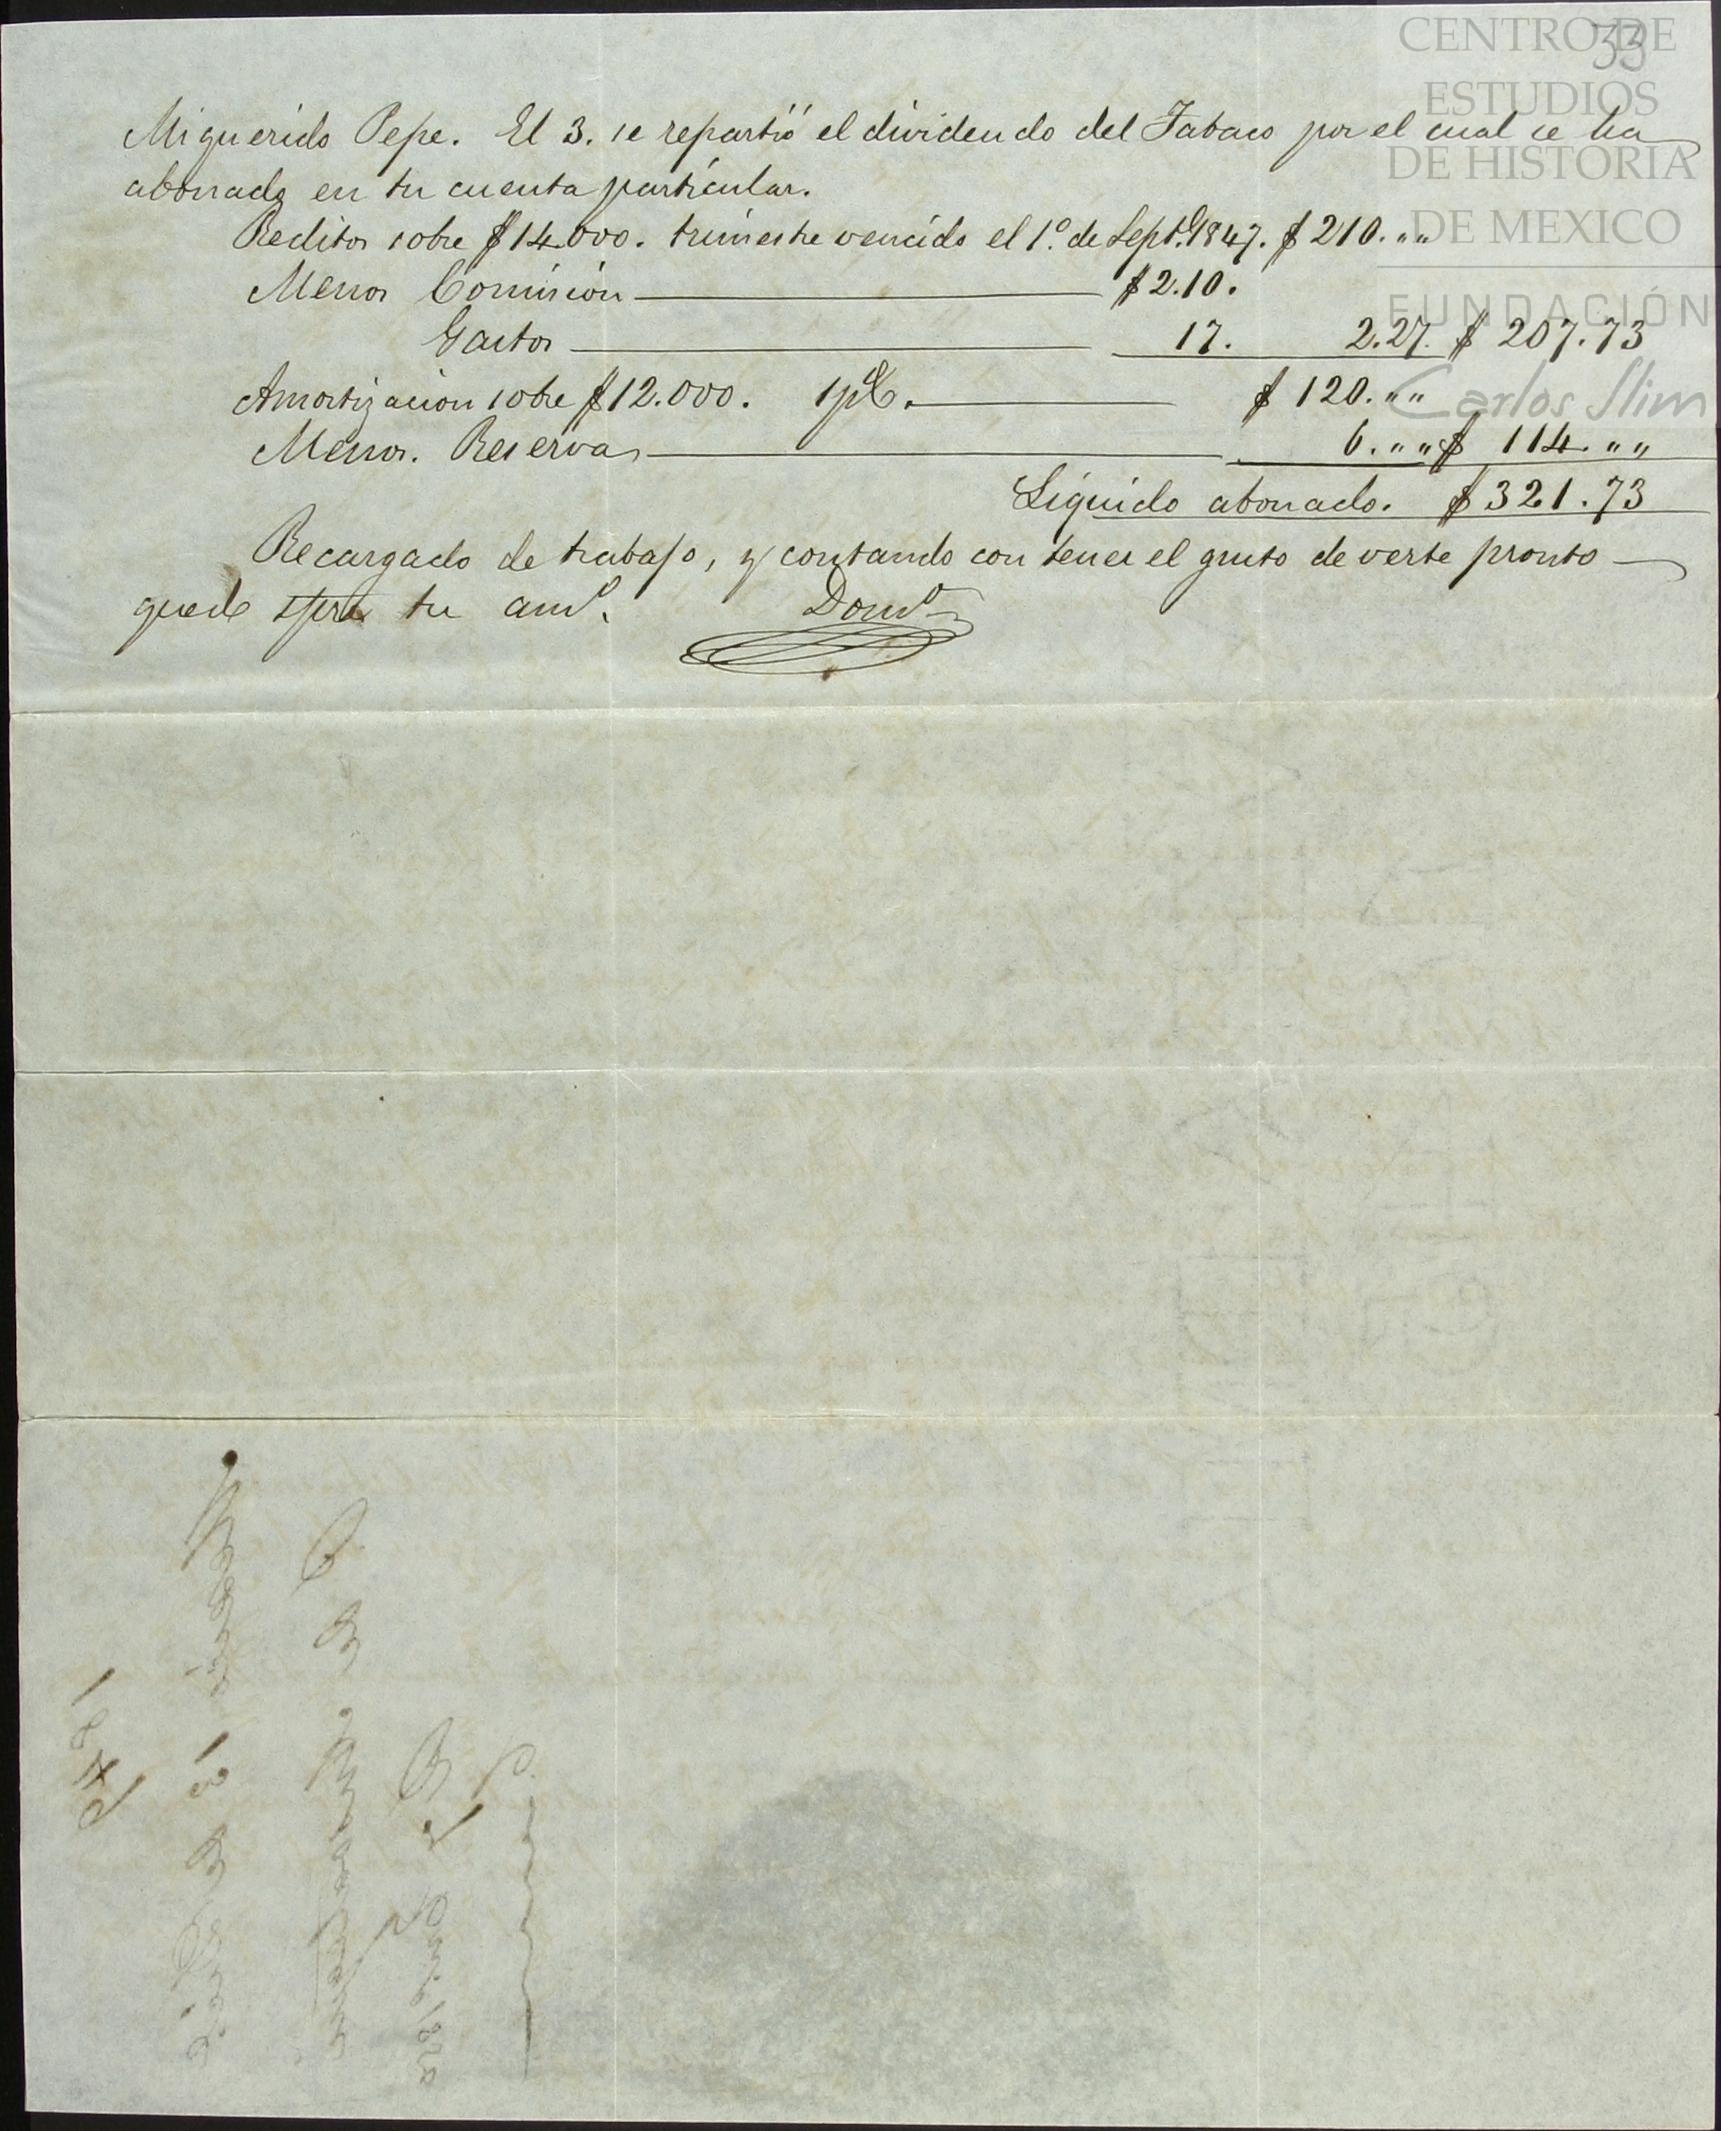 33
CENTRO DE
ESTUDIOS
DE HISTORIA
DE MEXICO
FUNDACIÓN
Carlos Slim
Mi querido Pepe. El 3. se repartió el dividendo del Tabaco por el cual se ha
abonado en tu cuenta particular.
Reditos sobre $14.000. trimestre vencido el 1º. de Sept.e 1847. $210. „„
Menos Comision $2.10.
Gastos 17. 2.27. $ 207.73
Amortizacion sobre $12.000. 1 p%. $ 120. „„
Menos. Reserva 6. „„ $ 114. „„
Liquido abonado. $321.73
Recargado de trabajo, y contando con tener el gusto de verte pronto
quedo tu amº. Domº
1849